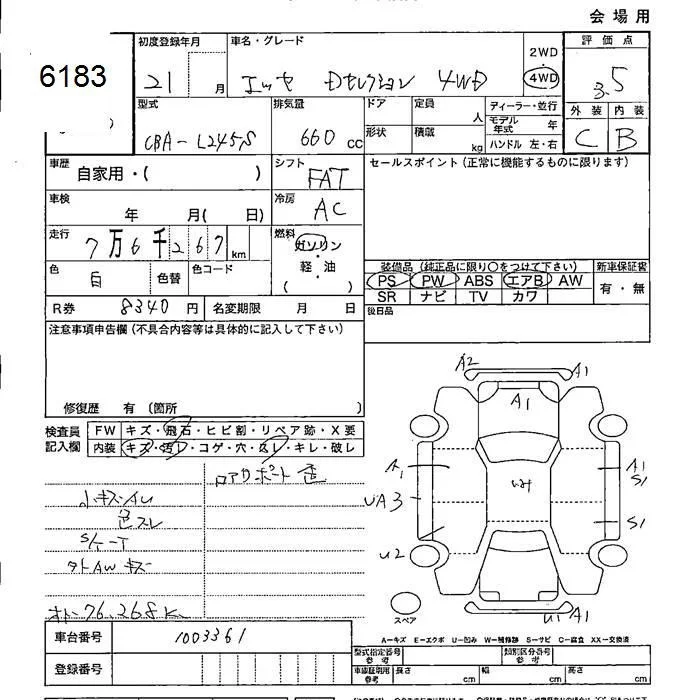 会場用
6183
初度登録年月
21
月
車名・グレード
エッセ Dセレクション 4WD
2WD
4WD
評価点
3.5
型式
CBA-L245S
排気量
660 cc
ドア
形状
定員
人
積載
kg
ディーラー・並行
モデル年式
年
ハンドル 左・右
外装
内装
C
B
車歴
自家用・( )
シフト
FAT
セールスポイント (正常に機能するものに限ります)
車検
年 月( 日)
冷房
AC
走行
7万6千267 km
燃料
ガソリン
・
軽・油
( )
色
白
色替
色コード
装備品 (純正品に限り○をつけて下さい)
PS PW ABS エアB AW
SR ナビ TV カワ
新車保証書
有・無
R券
8340 円
名変期限 月 日
後日品
注意事項申告欄 (不具合内容等は具体的に記入して下さい)
修復歴 有 (箇所 )
検査員
記入欄
FW
キズ・飛石・ヒビ割・リペア跡・X要
内装
キズ・汚レ・コゲ・穴・スレ・キレ・破レ
ロアサポート 歪
小キズ・AU
色スレ
オドー76,268K
A2
A1
A1
A1
UA3
A1
S1
S1
U2
U1 A1
スペア
A-キズ E-エクボ U-凹み W-補修跡 S-サビ C-腐食 XX-交換済
車台番号
1003361
登録番号
型式指定番号
参考
類別区分番号
参考
車庫証明用
参考
長さ
cm
幅
cm
高さ
cm